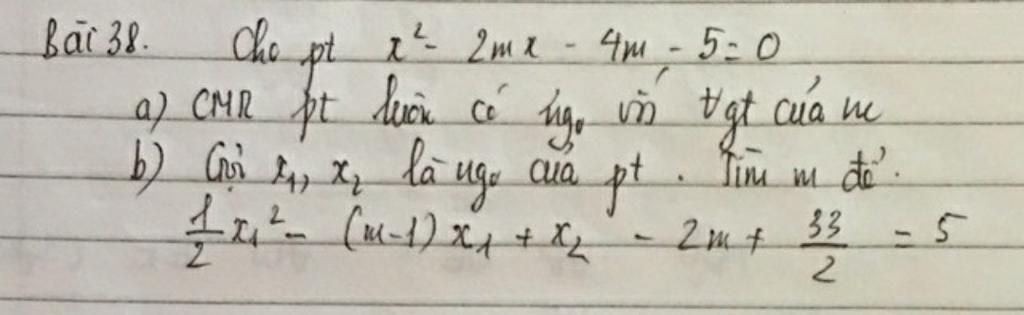 Bài 38. Cho pt x² - 2mx - 4m - 5 = 0
a) CMR pt luôn có ngo với ∀gt của m
b) Gọi x₁, x₂ là ngo của pt. Tìm m để.
1/2 x₁² - (m-1)x₁ + x₂ - 2m + 33/2 = 5